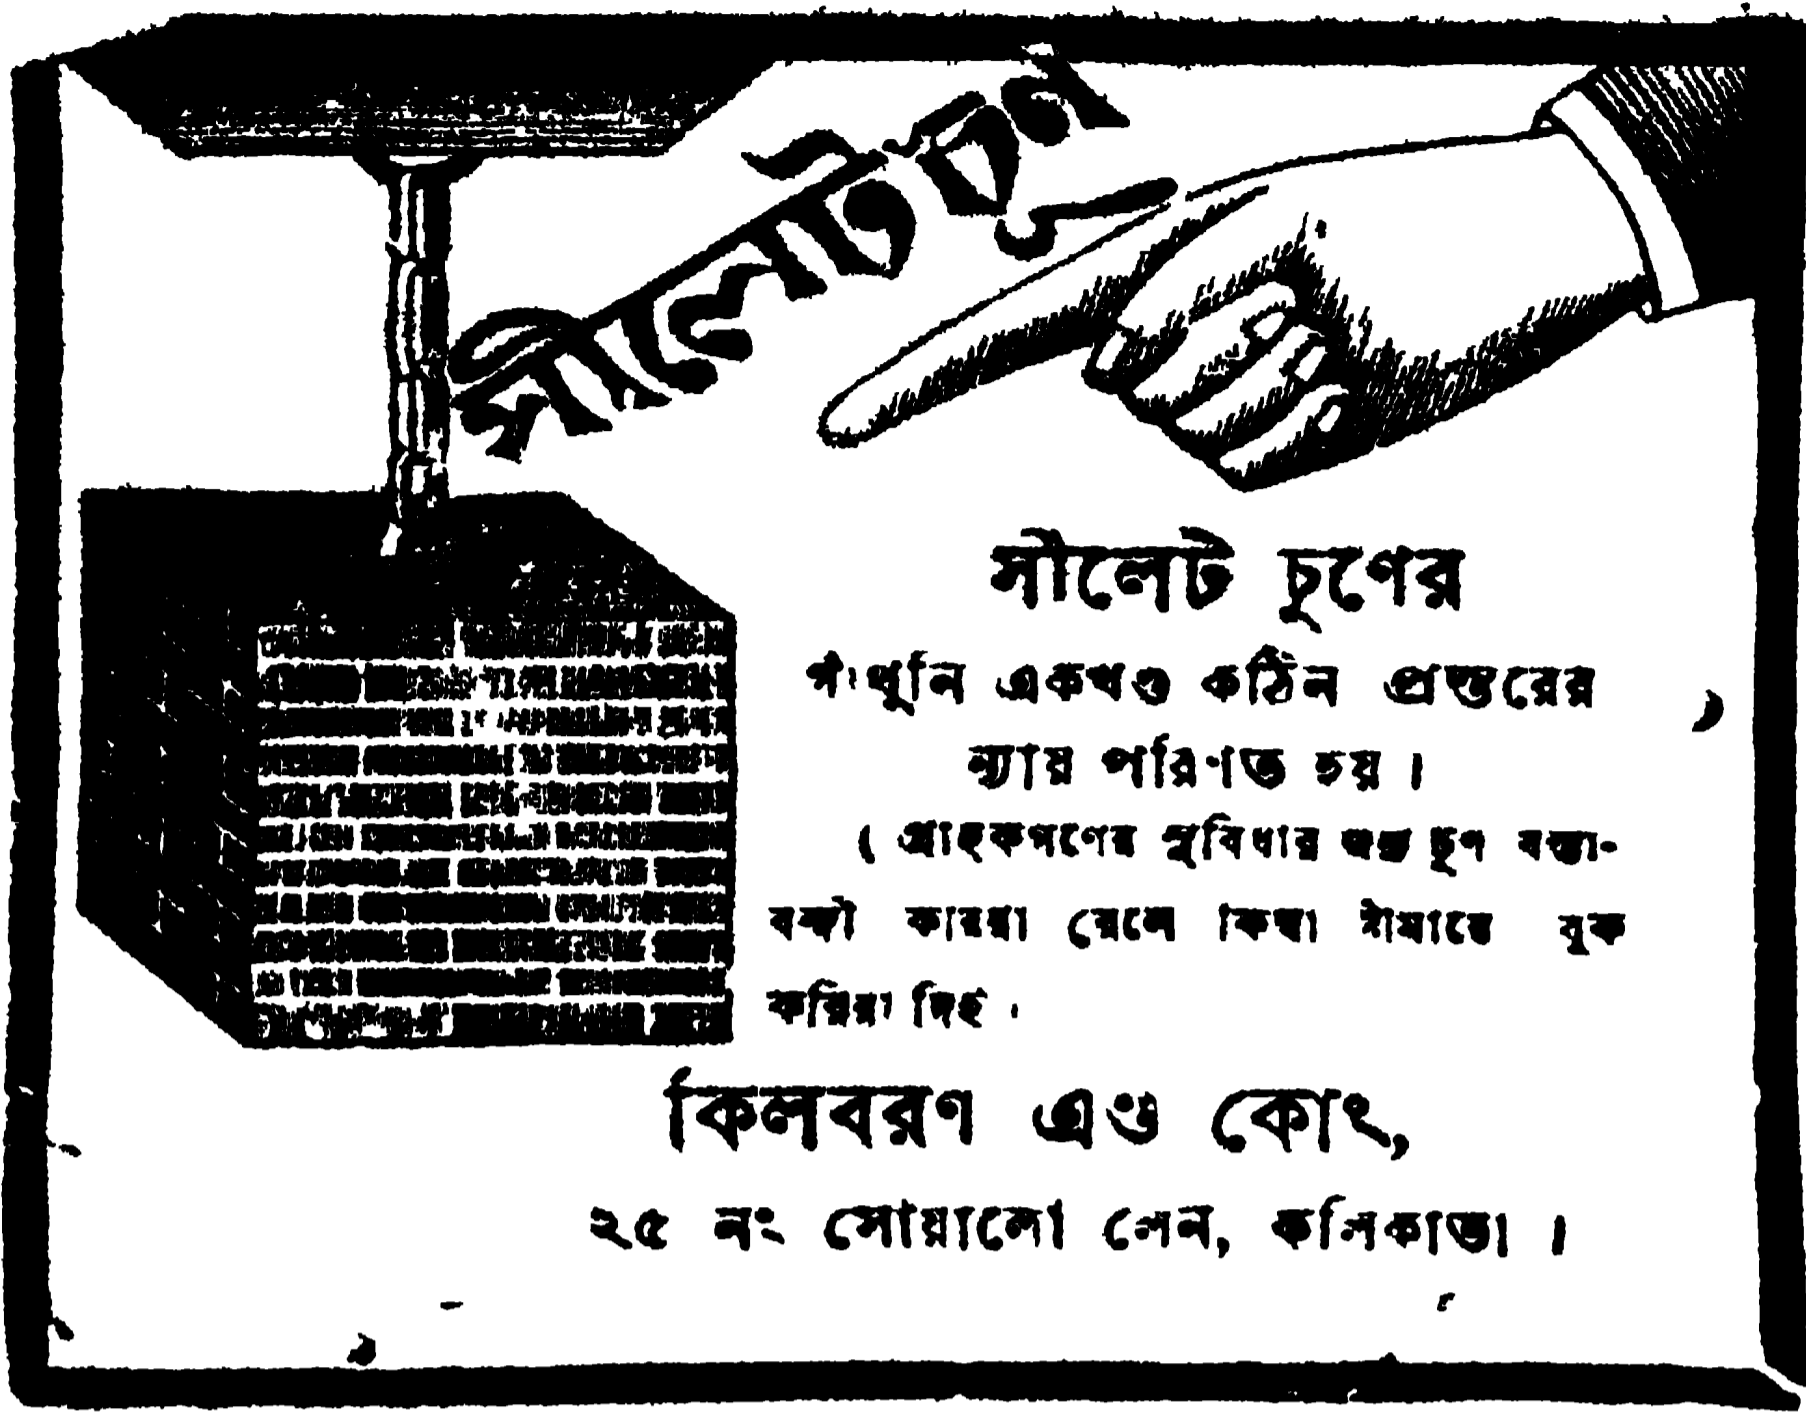 সীলেট চূর্ণ
সীলেট চুণের
গাঁথুনি একখণ্ড কঠিন প্রস্তরের
ন্যায় পরিণত হয়।
( গ্রাহকগণের সুবিধার জন্য চূণ বস্তা-
বন্দী করিয়া রেলে কিম্বা ষ্টীমারে বুক
করিয়া দিই।
কিলবরণ এণ্ড কোং,
২৫ নং সোয়ালো লেন, কলিকাতা।